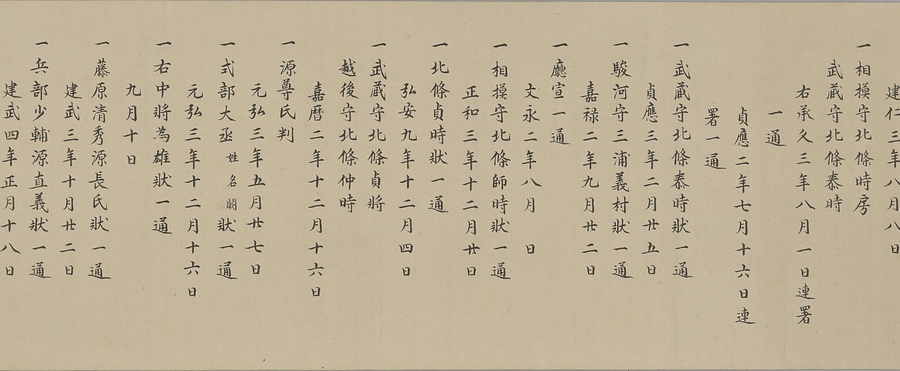 建仁三年八月八日
一相摸守北條時房
武蔵守北條泰時
右承久三年八月一日連署
一通
貞應二年七月十六日連
署一通
一武蔵守北條泰時狀一通
貞應三年二月廿五日
一駿河守三浦義村狀一通
嘉禄二年九月廿二日
一廳宣一通
文永二年八月 日
一相摸守北條師時狀一通
正和三年十二月廿日
一北條貞時狀一通
弘安九年十二月四日
一武蔵守北條貞將
越後守北條仲時
嘉暦二年十二月十六日
一源尊氏判
元弘三年五月廿七日
一式部大丞姓名闕狀一通
元弘三年十二月十六日
一右中將為雄狀一通
九月十日
一藤原清秀源長氏狀一通
建武三年十月廿二日
一兵部少輔源直義狀一通
建武四年正月十八日